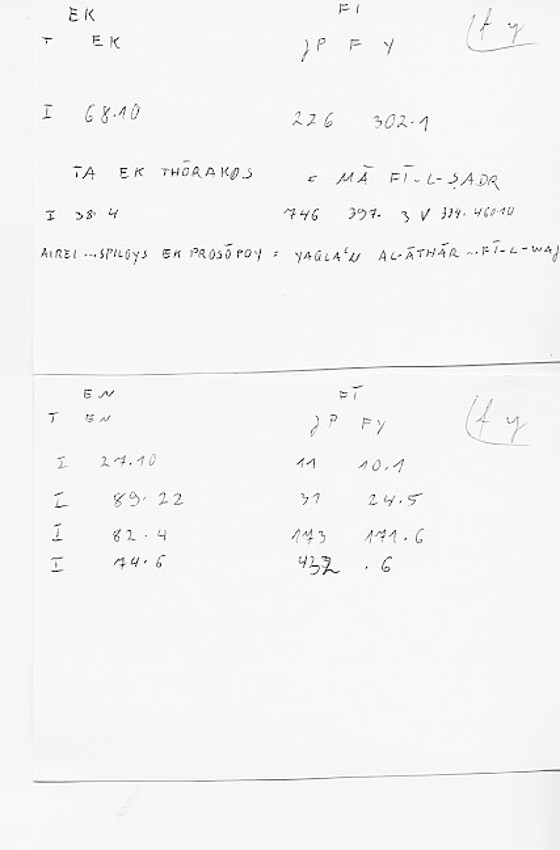 EK FĪ
T EK JP F Y fy
I 68.10 226 302.1
TA EK THŌRAKOS = MĀ FĪ-L-ṢADR
I 38.4 746 397. 3 V 334. 460.10
AIREI ... SPILOYS EK PROSŌPOY = YAQLAʿN AL-ĀTHĀR ... FĪ-L-WAJ
EN FĪ
T EN JP FY fy
I 27.10 11 10.1
I 89.22 31 24.5
I 82.4 173 171.6
I 74.6 .6